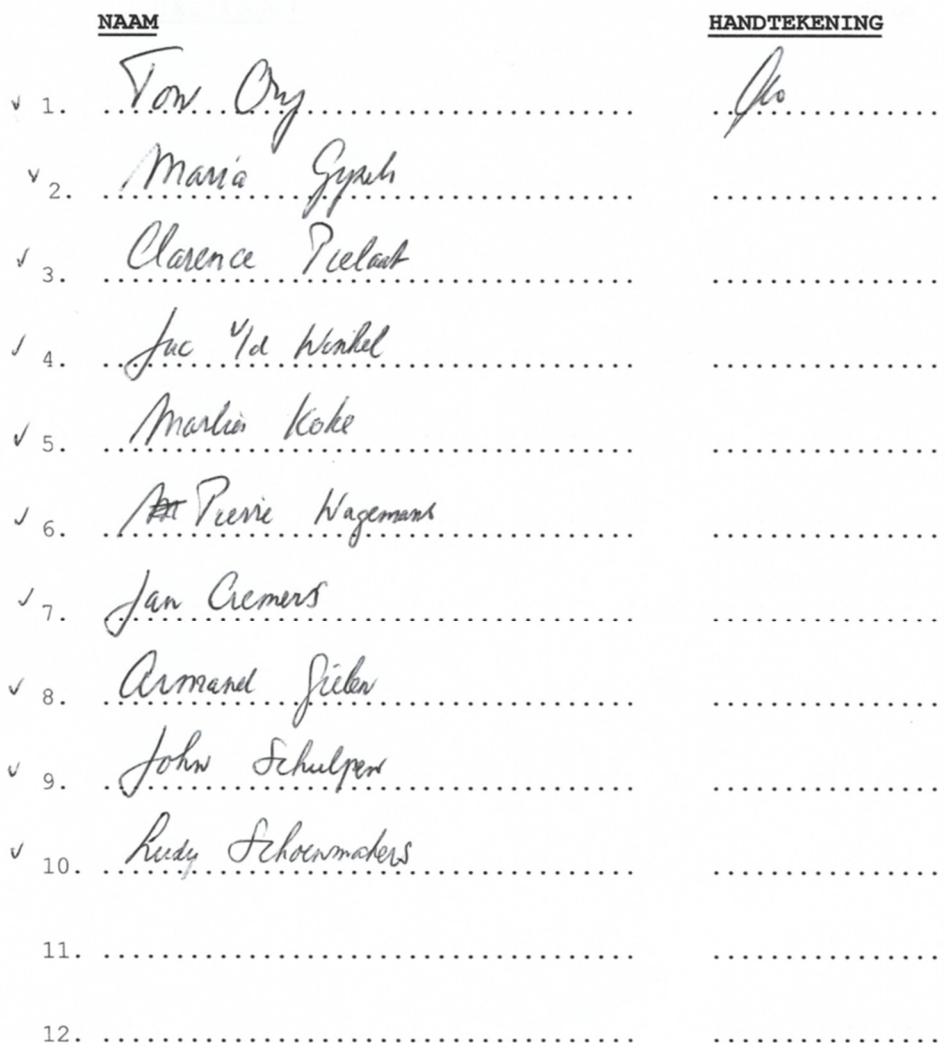 NAAM HANDTEKENING
✓ 1. Ton Ory
✓ 2. Maria
✓ 3. Clarence Pielaat
✓ 4. Jac v/d Winkel
✓ 5. Marlies Koke
✓ 6. Pierre Wagemans
✓ 7. Jan Cremers
✓ 8. Armand Gielen
✓ 9. John Schulpen
✓ 10. Rudy Schoenmakers
11.
12.